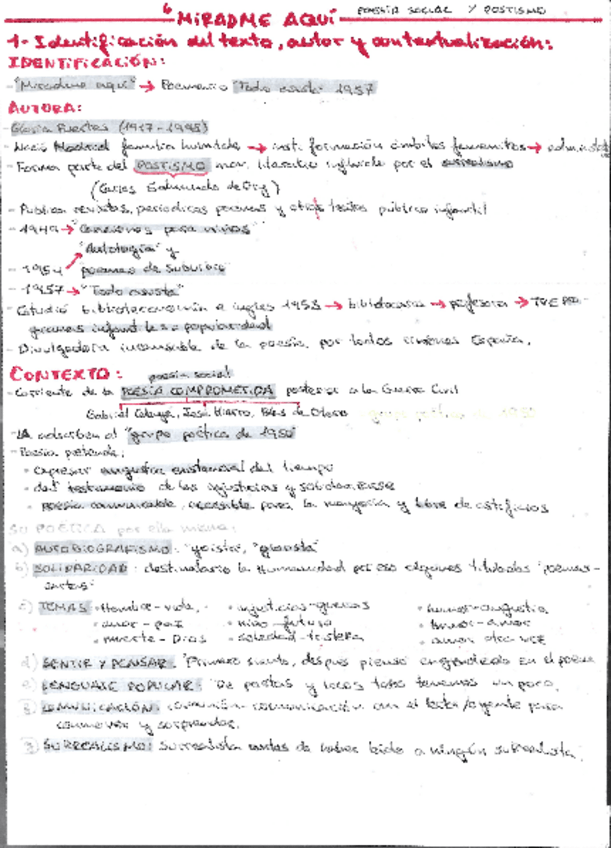 6 MIRADME AQUÍ POESÍA SOCIAL Y POSTISMO
1- Identificación del texto, autor y contextualización:
IDENTIFICACIÓN:
- "Miradme aquí" → Poemario "Todo asusta" 1957
AUTORA:
- Gloria Fuertes (1917-1998)
- Nació Madrid familia humilde → inst. formación ámbitos femeninos →
- Forma parte del POSTISMO mov. literario influido por el surrealismo
(Carlos Edmundo de Ory)
- Publica revistas, periódicos poemas y otros textos público infantil
- 1949 → "Canciones para niños"
"Antología" y
- 1954 poemas de suburbio"
- 1957 → "Todo asusta"
- Estudió biblioteconomía e inglés 1958 → bibliotecaria → profesora → TVE
gramas infantiles = popularidad
- Divulgadora incansable de la poesía, por todos España.
CONTEXTO: poesía social
- Corriente de la POESÍA COMPROMETIDA posterior a la Guerra Civil
Gabriel Celaya, José Hierro, Blas de Otero
- LA adscriben al "grupo poético de 1950"
- Poesía pretende:
• expresar angustia existencial del tiempo
• dar testimonio de las injusticias y solidarizarse
• poesía comunicable, accesible para la mayoría y libre de artificios
SU POÉTICA por ella misma:
a) AUTOBIOGRAFISMO: "yoísta", "glorista"
b) SOLIDARIDAD: destinatario la Humanidad por eso algunos titulados "poemas-
cartas"
c) TEMAS • Hombre-vida • injusticias-guerras • humor-angustia
• amor-paz • niño-futuro • humor-amor
• muerte-Dios • soledad-tristeza • amor
d) SENTIR Y PENSAR: "Primero siento, después pienso en el poema
e) LENGUAJE POPULAR: "De poetas y locos todos tenemos un poco.
f) COMUNICACIÓN: comunicación con el lector/oyente para
conmover y sorprender.
g) SURREALISMO: surrealista antes de haber leído a ningún surrealista